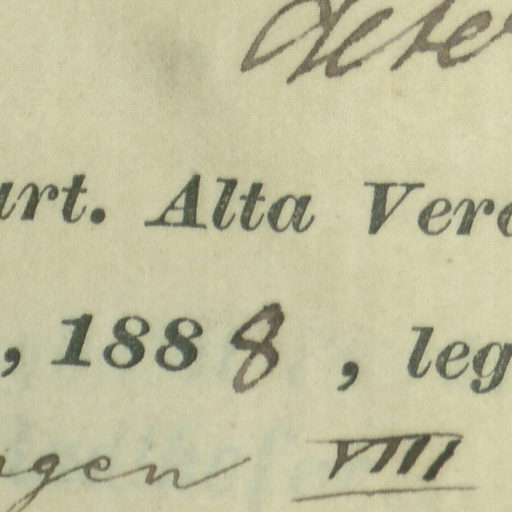 art. Alta Vere
, 1888, leg
ngen VIII